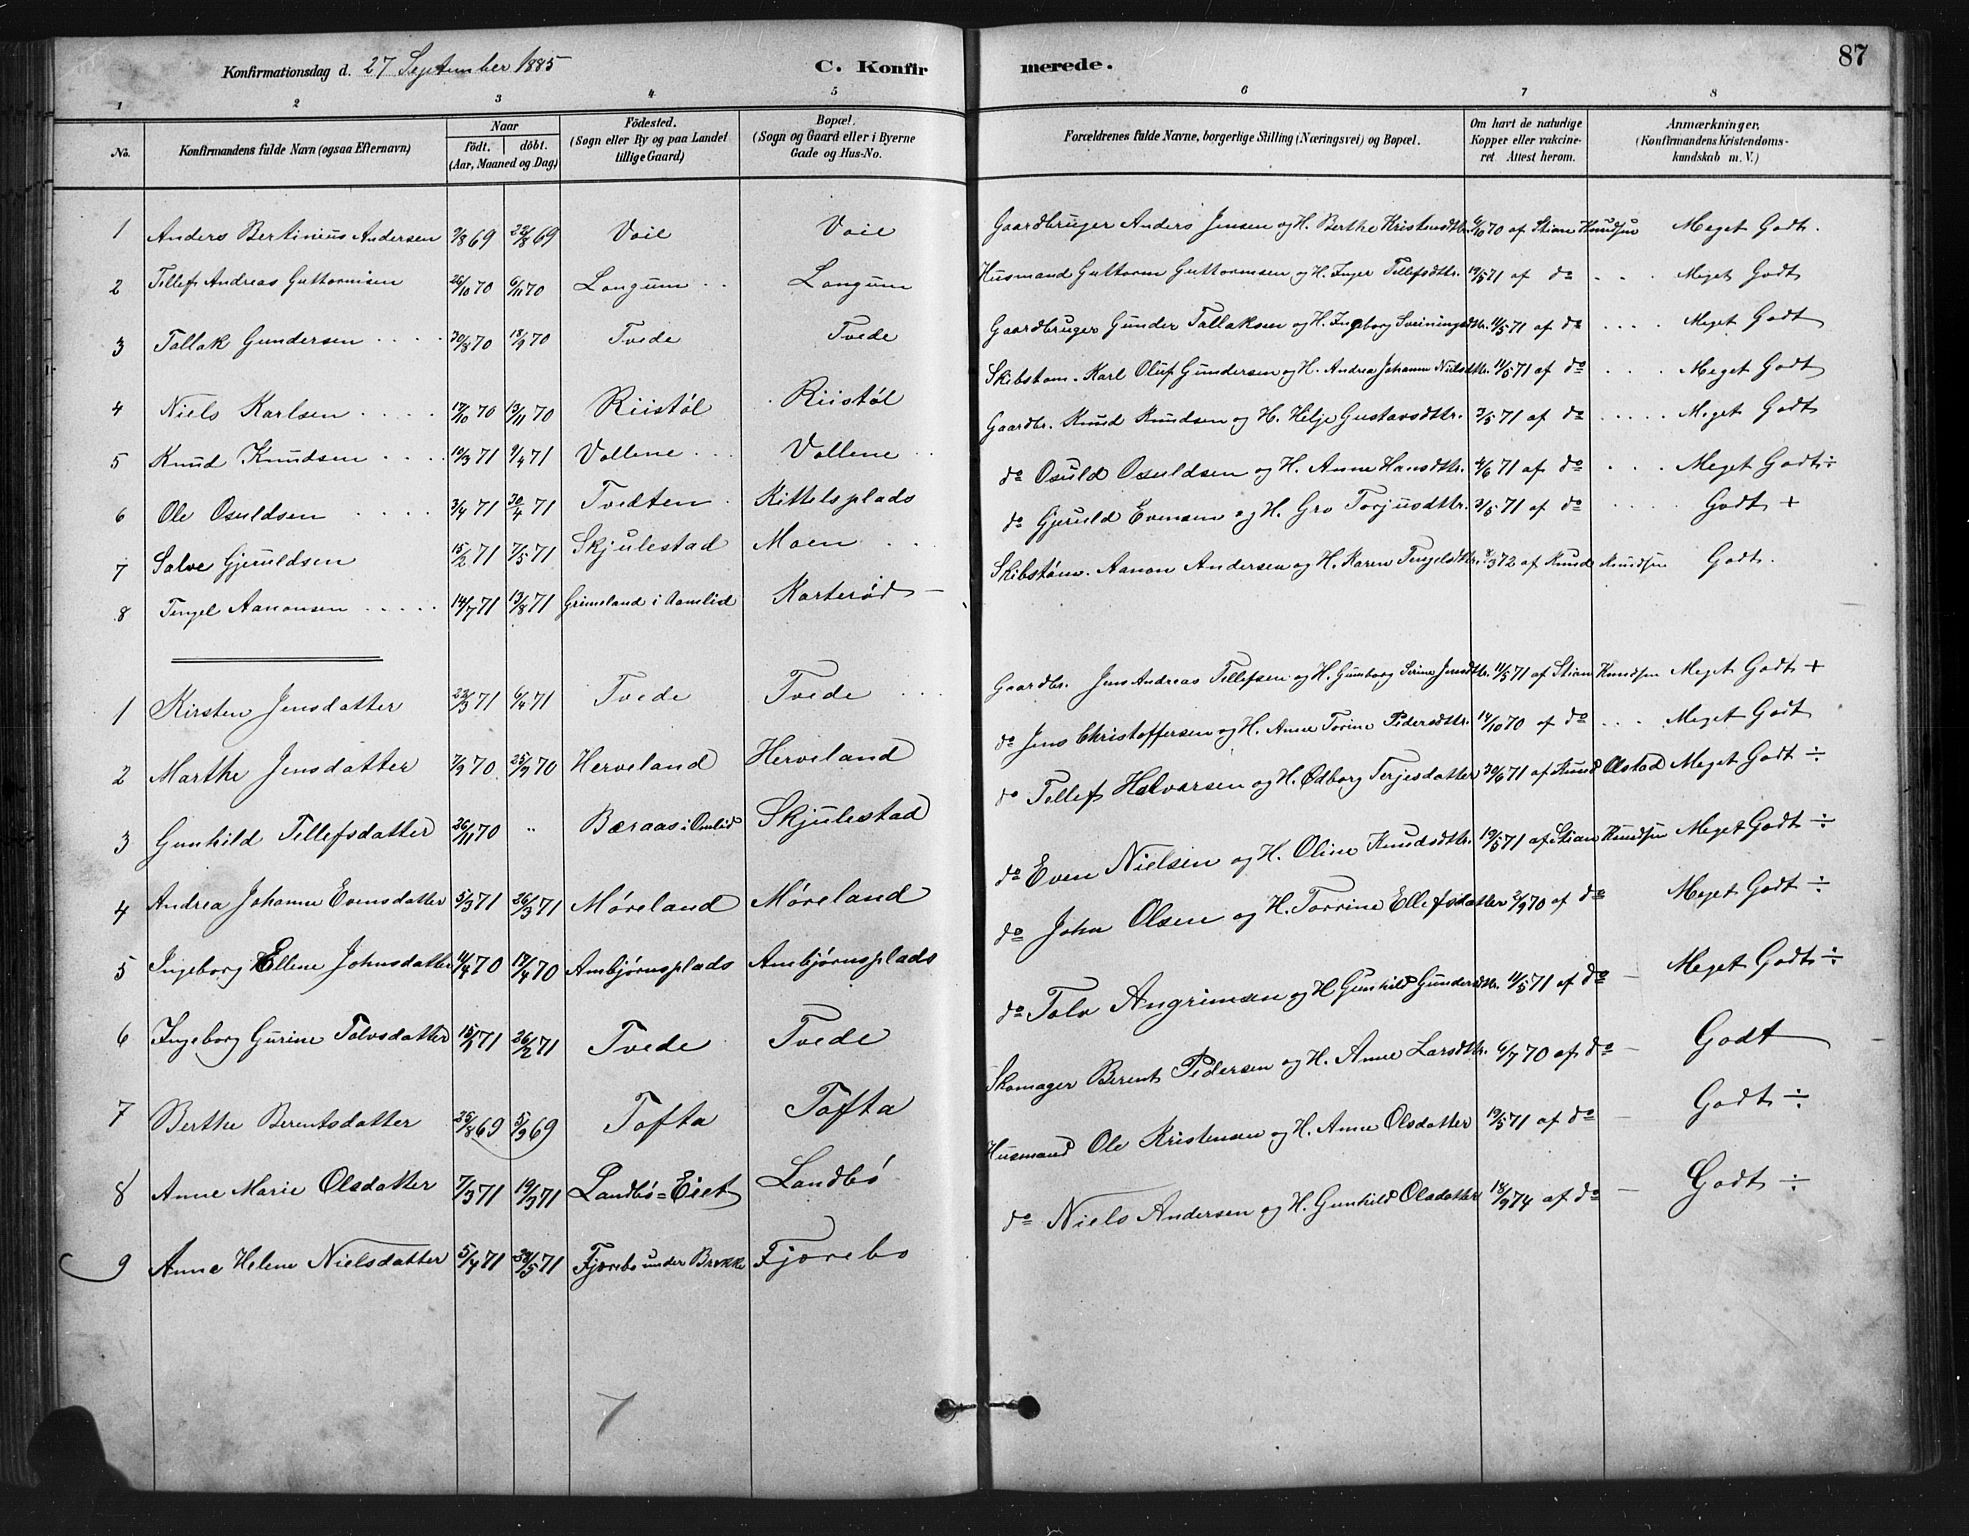 Konfirmationsdag d. 27 September 1885 C. Konfirmerede. 87
1 2 3 4 5 6 7 8
No. Konfirmandens fulde Navn (ogsaa Efternavn) Naar födt. döbt. (Aar, Maaned og Dag) Födested. (Sogn eller By og paa Landet tillige Gaard) Bopæl. (Sogn og Gaard eller i Byerne Gade og Hus-No. Forældrenes fulde Navne, borgerlige Stilling (Næringsvei) og Bopæl. Om havt de naturlige Kopper eller vakcineret. Attest herom. Anmærkninger. (Konfirmandens Kristendomskundskab m. V.)
1 Anders Bertinius Andersen 2/8 69 22/8 69 Voie Voie Gaardbruger Anders Jensen og H. Berthe Kristensdtr. 6/10 70 af Stian Knudsen Meget Godt.
2 Tellef Andreas Guttormsen 26/10 70 6/11 70 Longum . . Longum Husmand Guttorm Guttormsen og H. Inger Tellefsdtr. 19/5 71 af do . . . Meget Godt
3 Tallak Gundersen . . . . 30/8 70 18/9 70 Tvede Tvede Gaardbruger Gunder Tallaksen og H. Ingeborg Sveiningsdtr. 11/5 71 af do . . . . Meget Godt
4 Niels Karlsen . . . . 17/10 70 13/11 70 Riistøl Riistøl Skibstøm. Karl Oluf Gundersen og H. Andrea Johanne Nielsdtr. 11/5 71 af do . . . Meget Godt
5 Knud Knudsen . . . . 10/3 71 9/4 71 Vollene . . . Vollene . . Gaardbr. Knud Knudsen og H. Helje Gustavsdtr. 3/5 71 af do . . . . . Meget Godt
6 Ole Osuldsen . . . . 3/4 71 30/4 71 Tvedten . Kittelsplads do Osuld Osuldsen og H. Anne Hansdtr. 4/6 71 af do . . . Meget Godt ÷
7 Salve Gjeruldsen 15/2 71 7/5 71 Skjulestad Moen . . . do Gjeruld Evensen og H. Gro Torjusdttr. 3/5 71 af do . . . . . Godt +
8 Tengel Aanonsen . . . . . 14/7 71 13/8 71 Grimeland i Aamlid Karterød — Skibstøm. Aanon Andersen og H. Karen Tengelsdtr. 8/3 72 af Knud Knudsen Godt.
1 Kirsten Jensdatter 22/3 71 6/4 71 Tvede Tvede . . . Gaardbr. Jens Andreas Tellefsen og H. Gunborg Serine Jensdtr. 11/5 71 af Stian Knudsen Meget Godt +
2 Marthe Jensdatter 7/9 70 25/9 70 Herveland Herveland do Jens Christoffersen og H. Anne Torine Pedersdttr. 14/10 70 af do . . . Meget Godt
3 Gunhild Tellefsdatter 26/11 70 " Beraas i Omlid Skjulestad do Tellef Halvorsen og H. Ødborg Terjesdatter 30/6 71 af Knud Olstad Meget Godt ÷
4 Andrea Johanne Evensdatter 5/3 71 26/3 71 Møreland Møreland do Even Nielsen og H. Oline Knudsdttr. 19/5 71 af Stian Knudsen Meget Godt ÷
5 Ingeborg Ellene Johnsdatter 11/4 70 17/4 70 Ambjørnsplads Ambjørnsplads do John Olsen og H. Torrine Ellefsdatter 2/9 70 af do Meget Godt ÷
6 Ingeborg Gurine Tolvsdatter 15/1 71 26/2 71 Tvede Tvede do Tolv Angrimsen og H Gunhild Gundersdtr. 11/5 71 af do — Meget Godt ÷
7 Berthe Berentsdatter 25/8 69 5/9 69 Tofta Tofta Skomager Berent Pedersen og H. Anne Larsdtr. 6/7 70 af do — Godt
8 Anne Marie Olsdatter 7/3 71 19/3 71 Landbø=Eiet Landbø Husmand Ole Kristensen og H. Anne Olsdatter 19/5 71 af do — Godt ÷
9 Anne Helene Nielsdatter 5/4 71 30/5 71 Fjærebo under Brekke Fjærebo do Niels Andersen og H. Gunhild Olsdatter 18/9 74 af do — Godt ÷